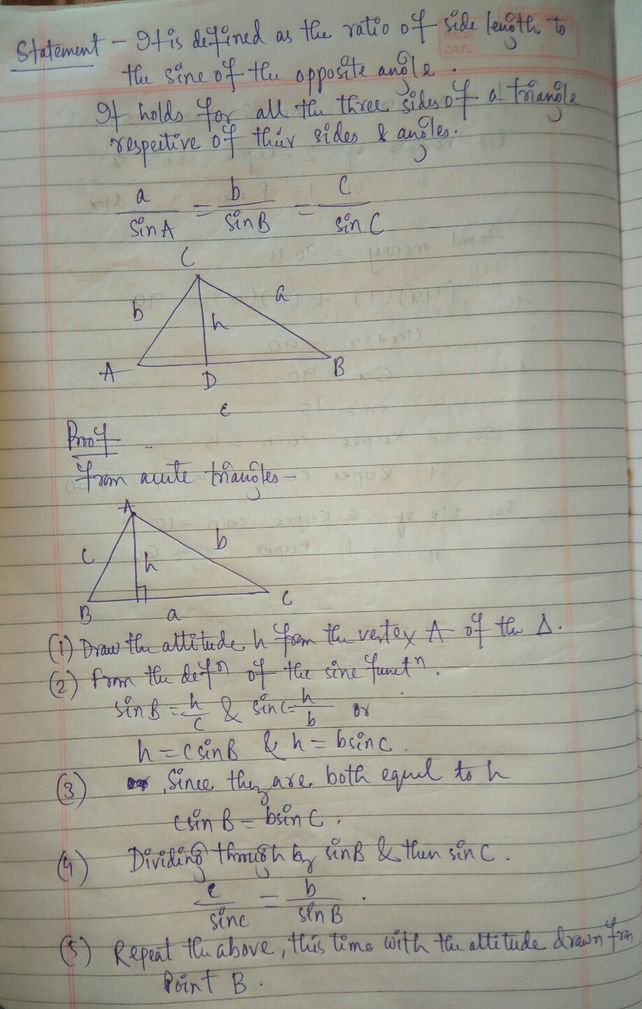 Statement - It is defined as the ratio of side length to
the sine of the opposite angle.
It holds for all the three sides of a triangle
respective of their sides & angles.
a/sinA = b/sinB = c/sinC
C
b a
h
A D B
c
Proof -
From acute triangles -
A
c h b
B a C
(1) Draw the altitude h from the vertex A of the Δ.
(2) From the defⁿ of the sine functⁿ.
sin B = h/c & sinC = h/b or
h = c sin B & h = b sin C.
(3) , Since they are both equal to h
c sin B = b sin C.
(4) Dividing through by sinB & then sin C.
c/sinc = b/sin B.
(5) Repeat the above, this time with the altitude drawn from
Point B.